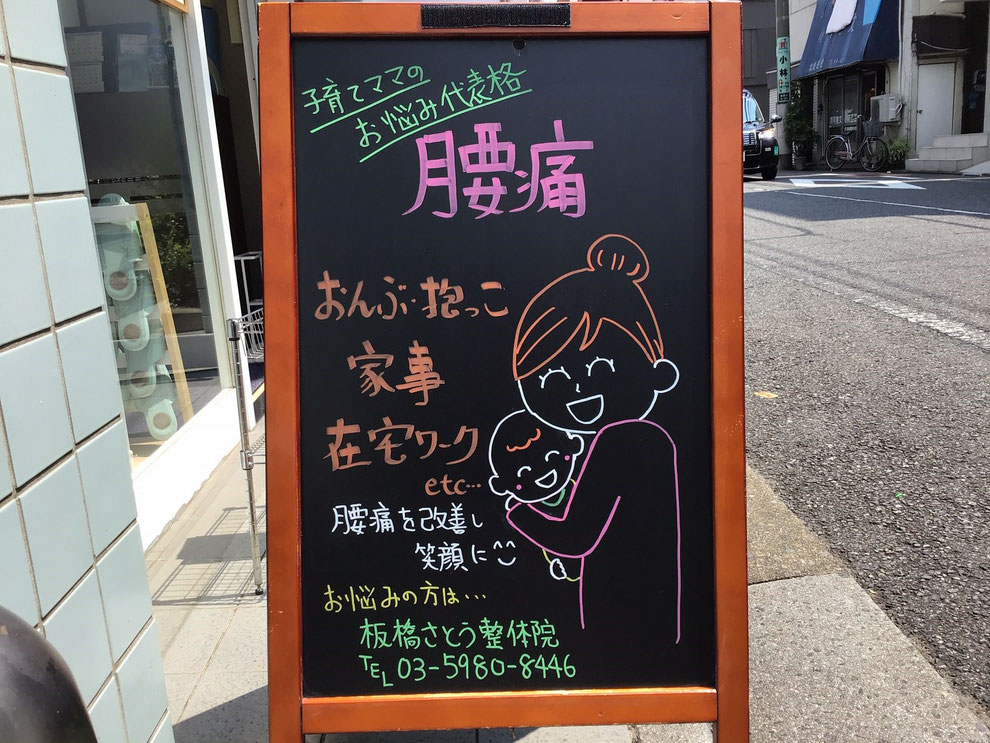 子育てママの
お悩み代表格
腰痛
おんぶ・抱っこ
家事
在宅ワーク
etc…
腰痛を改善し
笑顔に
お悩みの方は…
板橋さとう整体院
TEL 03-5980-8446
小林